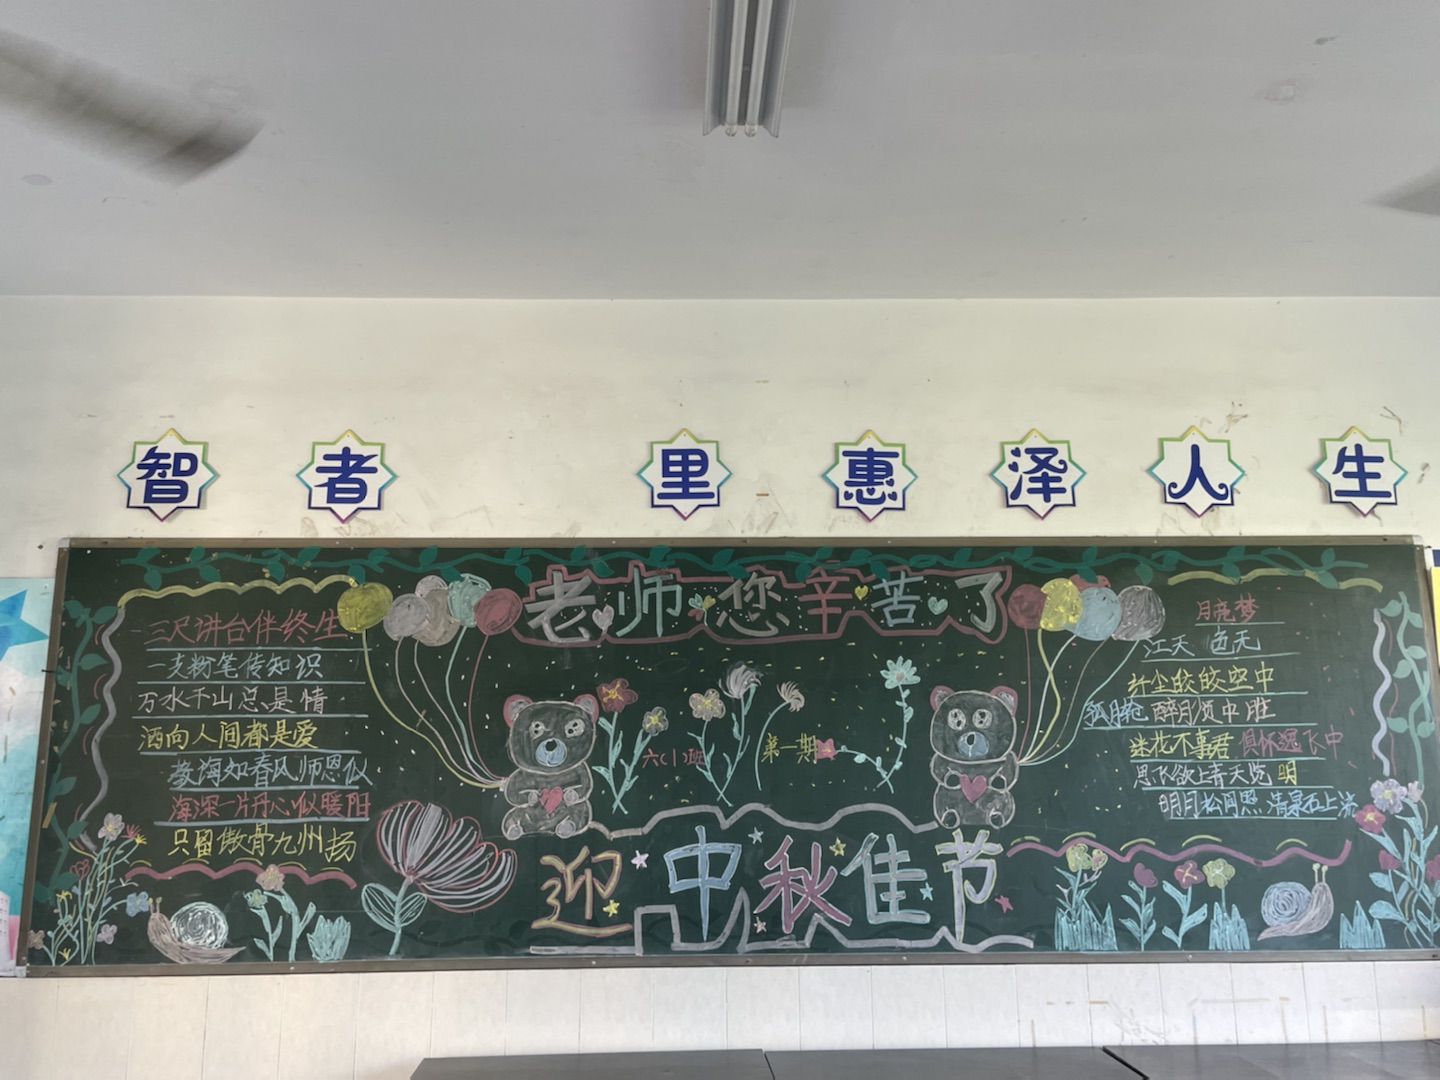 智者 里惠泽人生
老师您辛苦了
三尺讲台伴终生
一支粉笔传知识
万水千山总是情
洒向人间都是爱
教诲如春风师恩似
海深一片丹心似暖阳
只留傲骨九州扬
六(1)班
第一期
迎中秋佳节
月亮梦
江天 色无
纤尘皎皎空中
孤月轮 醉月频中胜
迷花不事君 俱怀逸飞中
思飞欲上青天览 明
明月松间照 清泉石上流